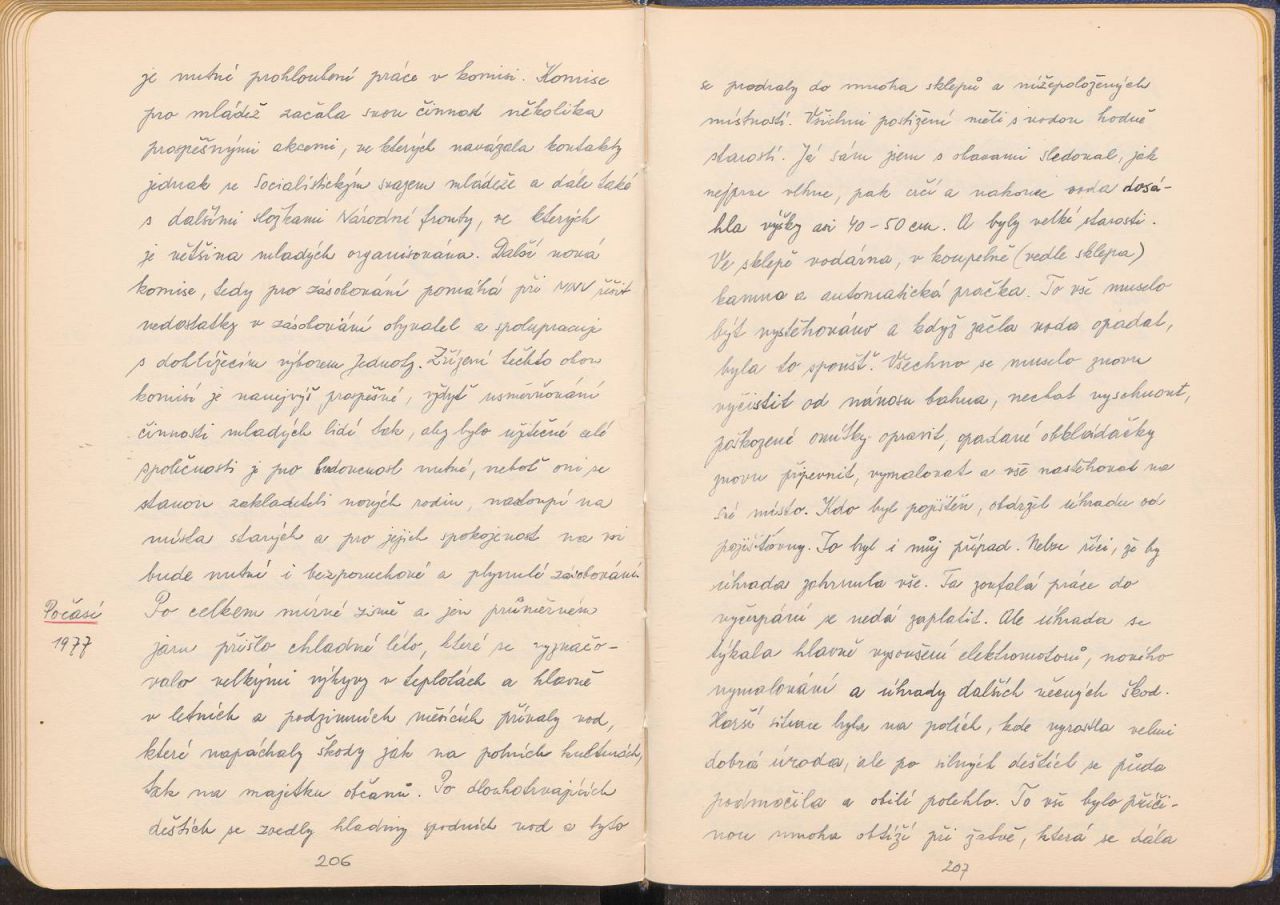 je nutné prohloubení práce v komisi. Komise
pro mládež začala svou činnost několika
prospěšnými akcemi, ve kterých navázala kontakty
jednak se Socialistickým svazem mládeže a dále také
s dalšími složkami Národní fronty, ve kterých
je většina mladých organisována. Další nová
komise, tedy pro zásobování pomáhá při MNV řešit
nedostatky v zásobování obyvatel a spolupracuje
s dohlížecím výborem Jednoty. Zřízení těchto obou
komisí je nanejvýš prospěšné, vždyť usměrňování
činnosti mladých lidí tak, aby bylo užitečné celé
společnosti je pro budoucnost nutné, neboť oni se
stanou zakladateli nových rodin, nastoupí na
místa starých a pro jejich spokojenost na vsi
bude nutné i bezporuchové a plynulé zásobování.
Počasí
1977
Po celkem mírné zimě a jen průměrném
jaru přišlo chladné léto, které se vyznačo-
valo velkými výkyvy v teplotách a hlavně
v letních a podzimních měsících přívaly vod,
které napáchaly škody jak na polních kulturách,
tak na majetku občanů. Po dlouhotrvajících
deštích se zvedly hladiny spodních vod a tyto
206
se prodraly do mnoha sklepů a nížepoložených
místností. Všichni postižení měli s vodou hodně
starostí. Já sám jsem s obavami sledoval, jak
nejprve vlhne, pak crčí a nakonec voda dosá-
hla výšky asi 40-50 cm. A byly velké starosti.
Ve sklepě vodárna, v koupelně (vedle sklepa)
kamna a automatická pračka. To vše muselo
být vystěhováno a když začla voda opadat,
byla to spoušť. Všechno se muselo znovu
vyčistit od nánosu bahna, nechat vyschnout,
poškozené omítky opravit, opadané obkládačky
znovu připevnit, vymalovat a vše nastěhovat na
své místo. Kdo byl pojištěn, obdržel úhradu od
pojišťovny. To byl i můj případ. Nelze říci, že by
úhrada zahrnula vše. Ta zoufalá práce do
vyčerpání se nedá zaplatit. Ale úhrada se
týkala hlavně vysoušení elektromotorů, nového
vymalování a úhrady dalších věcných škod.
Horší situace byla na polích, kde vyrostla velmi
dobrá úroda, ale po silných deštích se půda
podmočila a obilí polehlo. To vše bylo příči-
nou mnoha obtíží při žatvě, která se dála
207